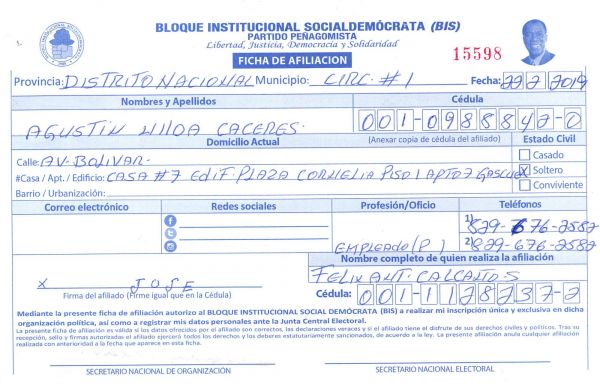 BLOQUE INSTITUCIONAL SOCIALDEMÓCRATA (BIS)
PARTIDO PEÑAGOMISTA
Libertad, Justicia, Democracia y Solidaridad
FICHA DE AFILIACION
15598
Provincia: DISTRITO NACIONAL Municipio: CIRC. #1 Fecha: 22 2 2019
Nombres y Apellidos Cédula
AGUSTIN CACERES. 001-0988842-0
(Anexar copia de cédula del afiliado)
Domicilio Actual Estado Civil
Calle: AV. BOLIVAR. Casado
#Casa / Apt. / Edificio: CASA #7 EDIF. PLAZA CORNELIA PISO 1 APTO 7 GASCUE X Soltero
Barrio / Urbanización: Conviviente
Correo electrónico Redes sociales Profesión/Oficio Teléfonos
1) 829-676-2582
EMPLEADO (P) 2) 829-676-2582
Nombre completo de quien realiza la afiliación
X JOSE FELIX ANT. S
Firma del afiliado (Firme igual que en la Cédula) Cédula: 001-1128237-2
Mediante la presente ficha de afiliación autorizo al BLOQUE INSTITUCIONAL SOCIAL DEMÓCRATA (BIS) a realizar mi inscripción única y exclusiva en dicha
organización política, así como a registrar mis datos personales ante la Junta Central Electoral.
La presente ficha de afiliación es válida si los datos ofrecidos por el afiliado son correctos, las declaraciones veraces y si el afiliado tiene el disfrute de sus derechos civiles y políticos. Tras su
recepción, sello y firmas autorizadas el afiliado ejercerá todos los derechos y los deberes estatutariamente sancionados, de acuerdo a la ley. La presente afiliación anula cualquier afiliación
realizada con anterioridad a la fecha que aparece en esta ficha.
SECRETARIO NACIONAL DE ORGANIZACIÓN SECRETARIO NACIONAL ELECTORAL